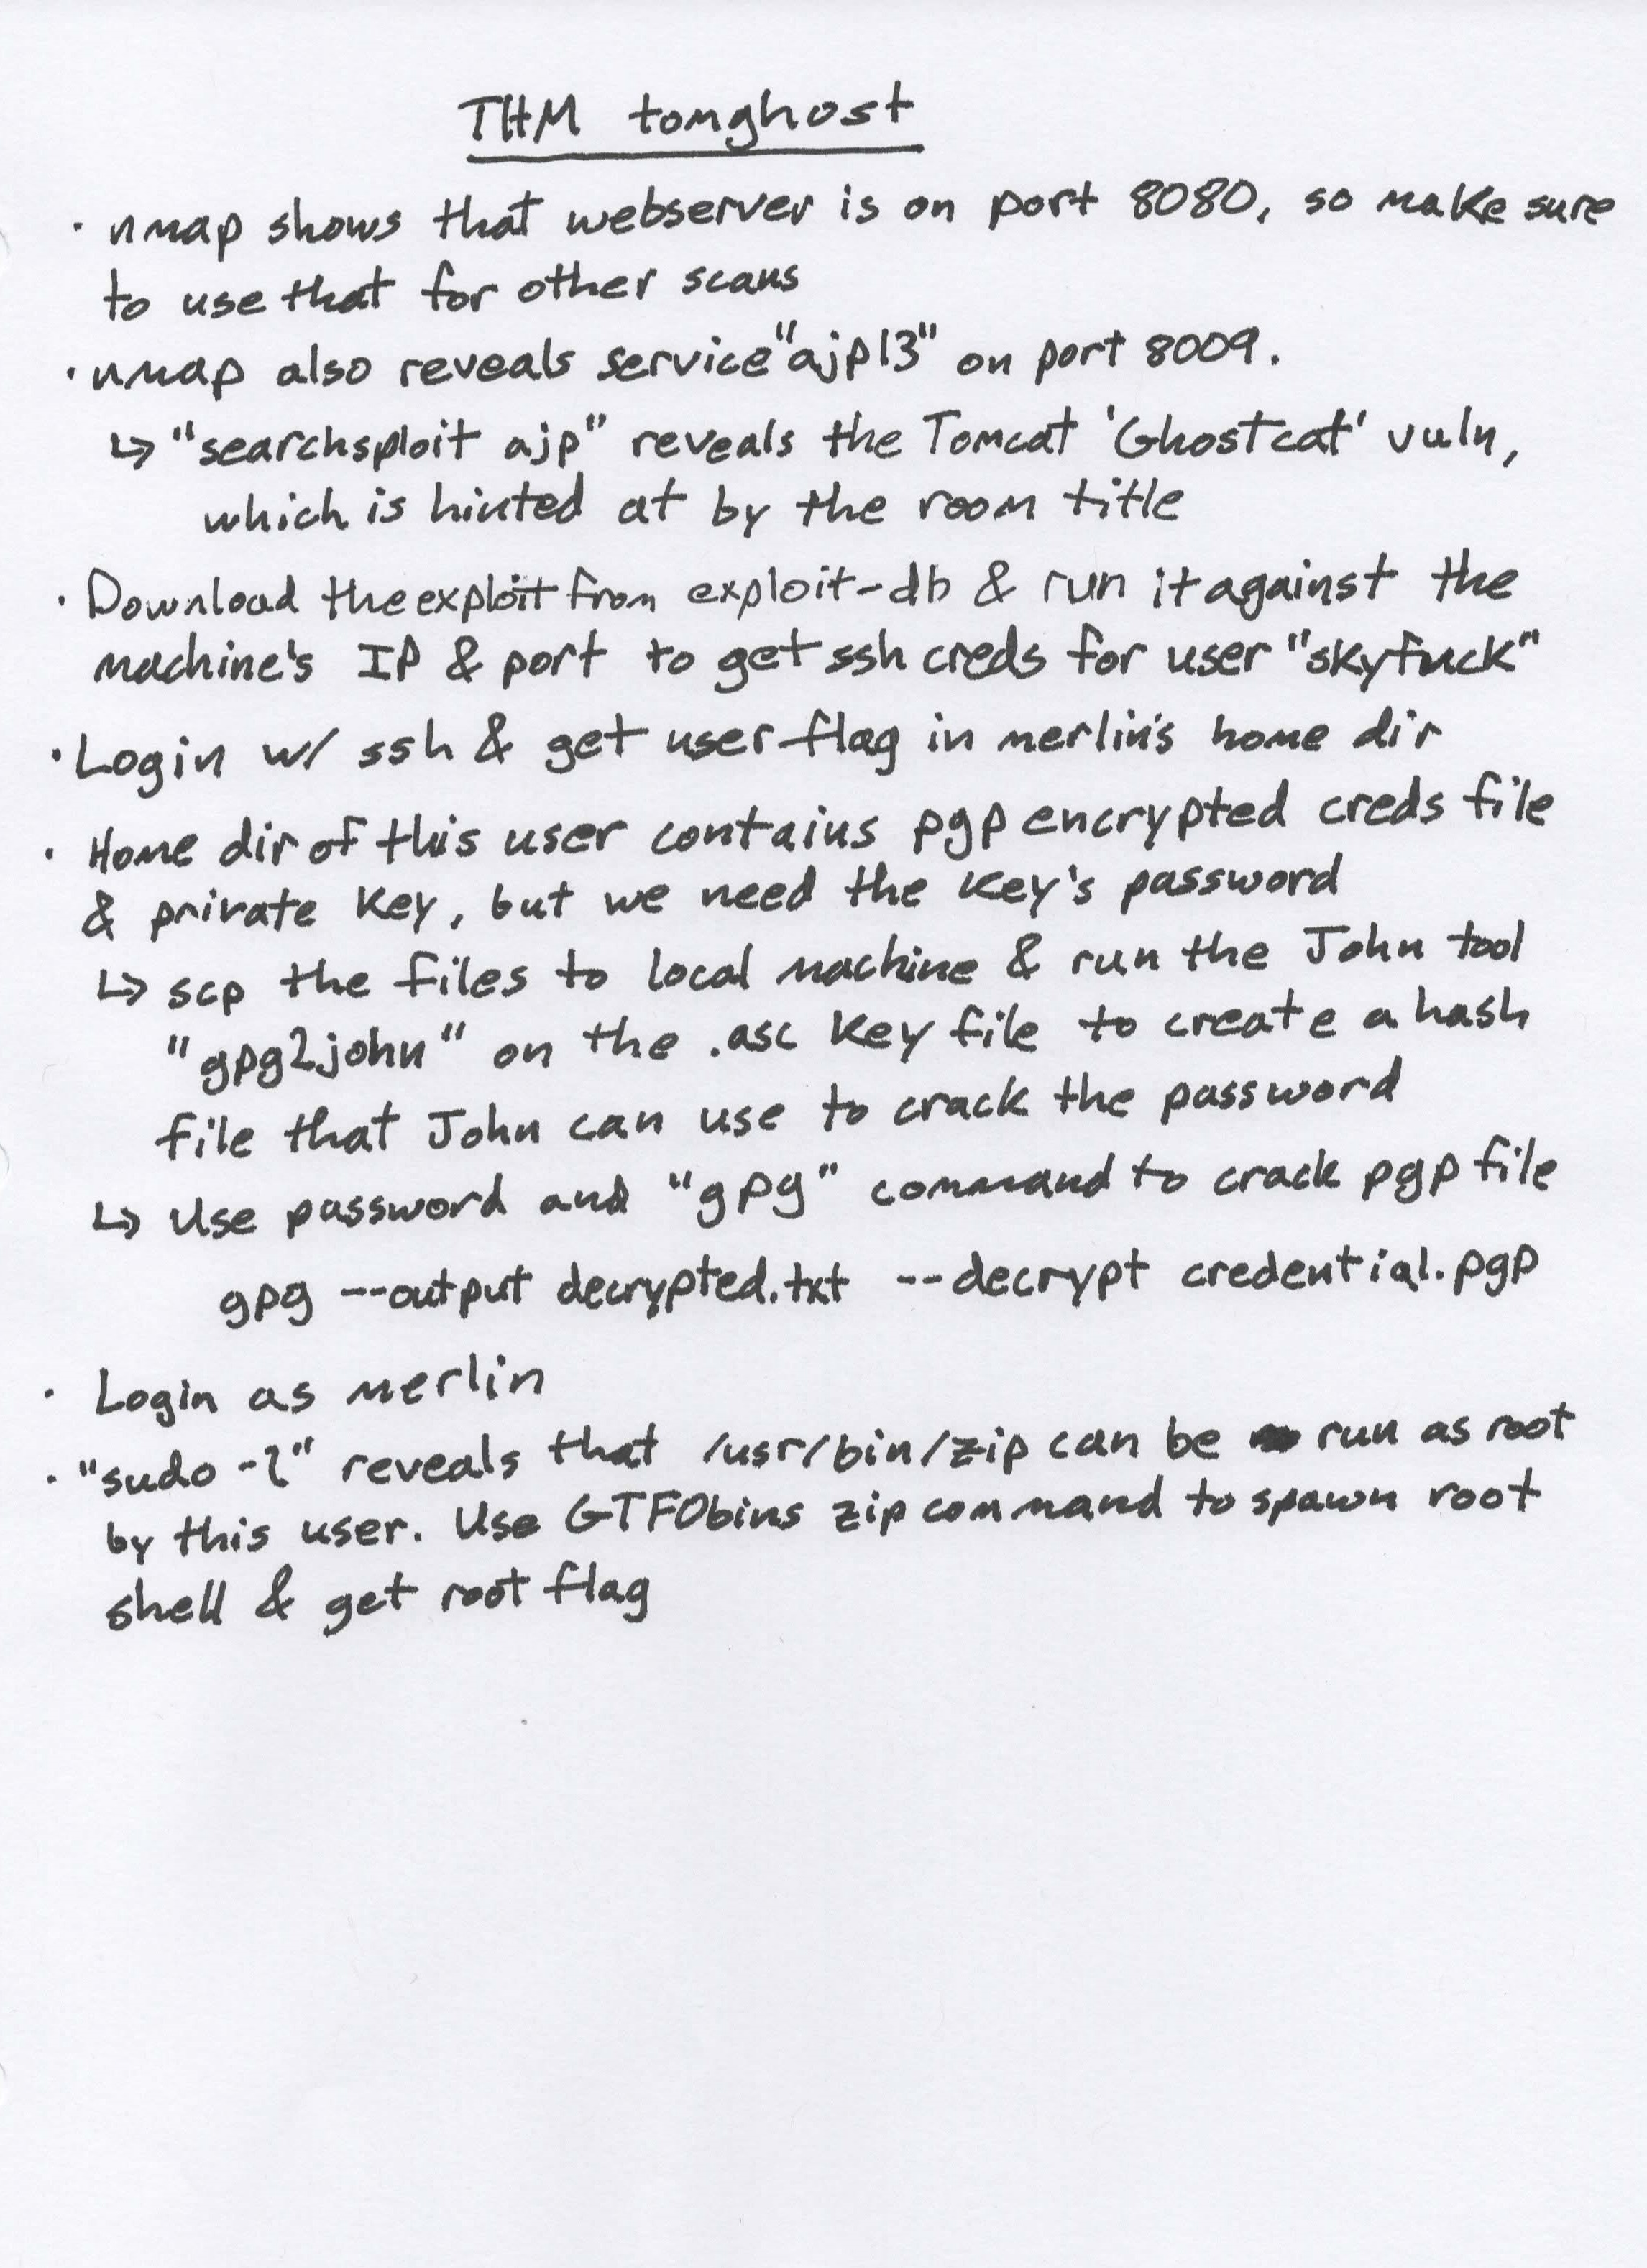 THM tomghost
· nmap shows that webserver is on port 8080, so make sure
to use that for other scans
· nmap also reveals service "ajp13" on port 8009.
↳ "searchsploit ajp" reveals the Tomcat 'Ghostcat' vuln,
which is hinted at by the room title
· Download the exploit from exploit-db & run it against the
machine's IP & port to get ssh creds for user "skyfuck"
· Login w/ ssh & get user flag in merlin's home dir
· Home dir of this user contains pgp encrypted creds file
& private key, but we need the key's password
↳ scp the files to local machine & run the John tool
"gpg2john" on the .asc key file to create a hash
file that John can use to crack the password
↳ Use password and "gpg" command to crack pgp file
gpg --output decrypted.txt --decrypt credential.pgp
· Login as merlin
· "sudo -l" reveals that /usr/bin/zip can be run as root
by this user. Use GTFObins zip command to spawn root
shell & get root flag